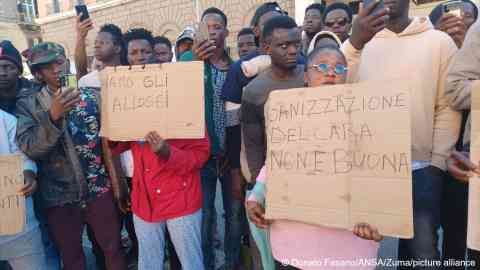 IAMO GLI
ALLOGGI
GANIZZAZIONE
DEL CARA
NON E BUONA
© Donato Fasano/ANSA/Zuma/picture alliance